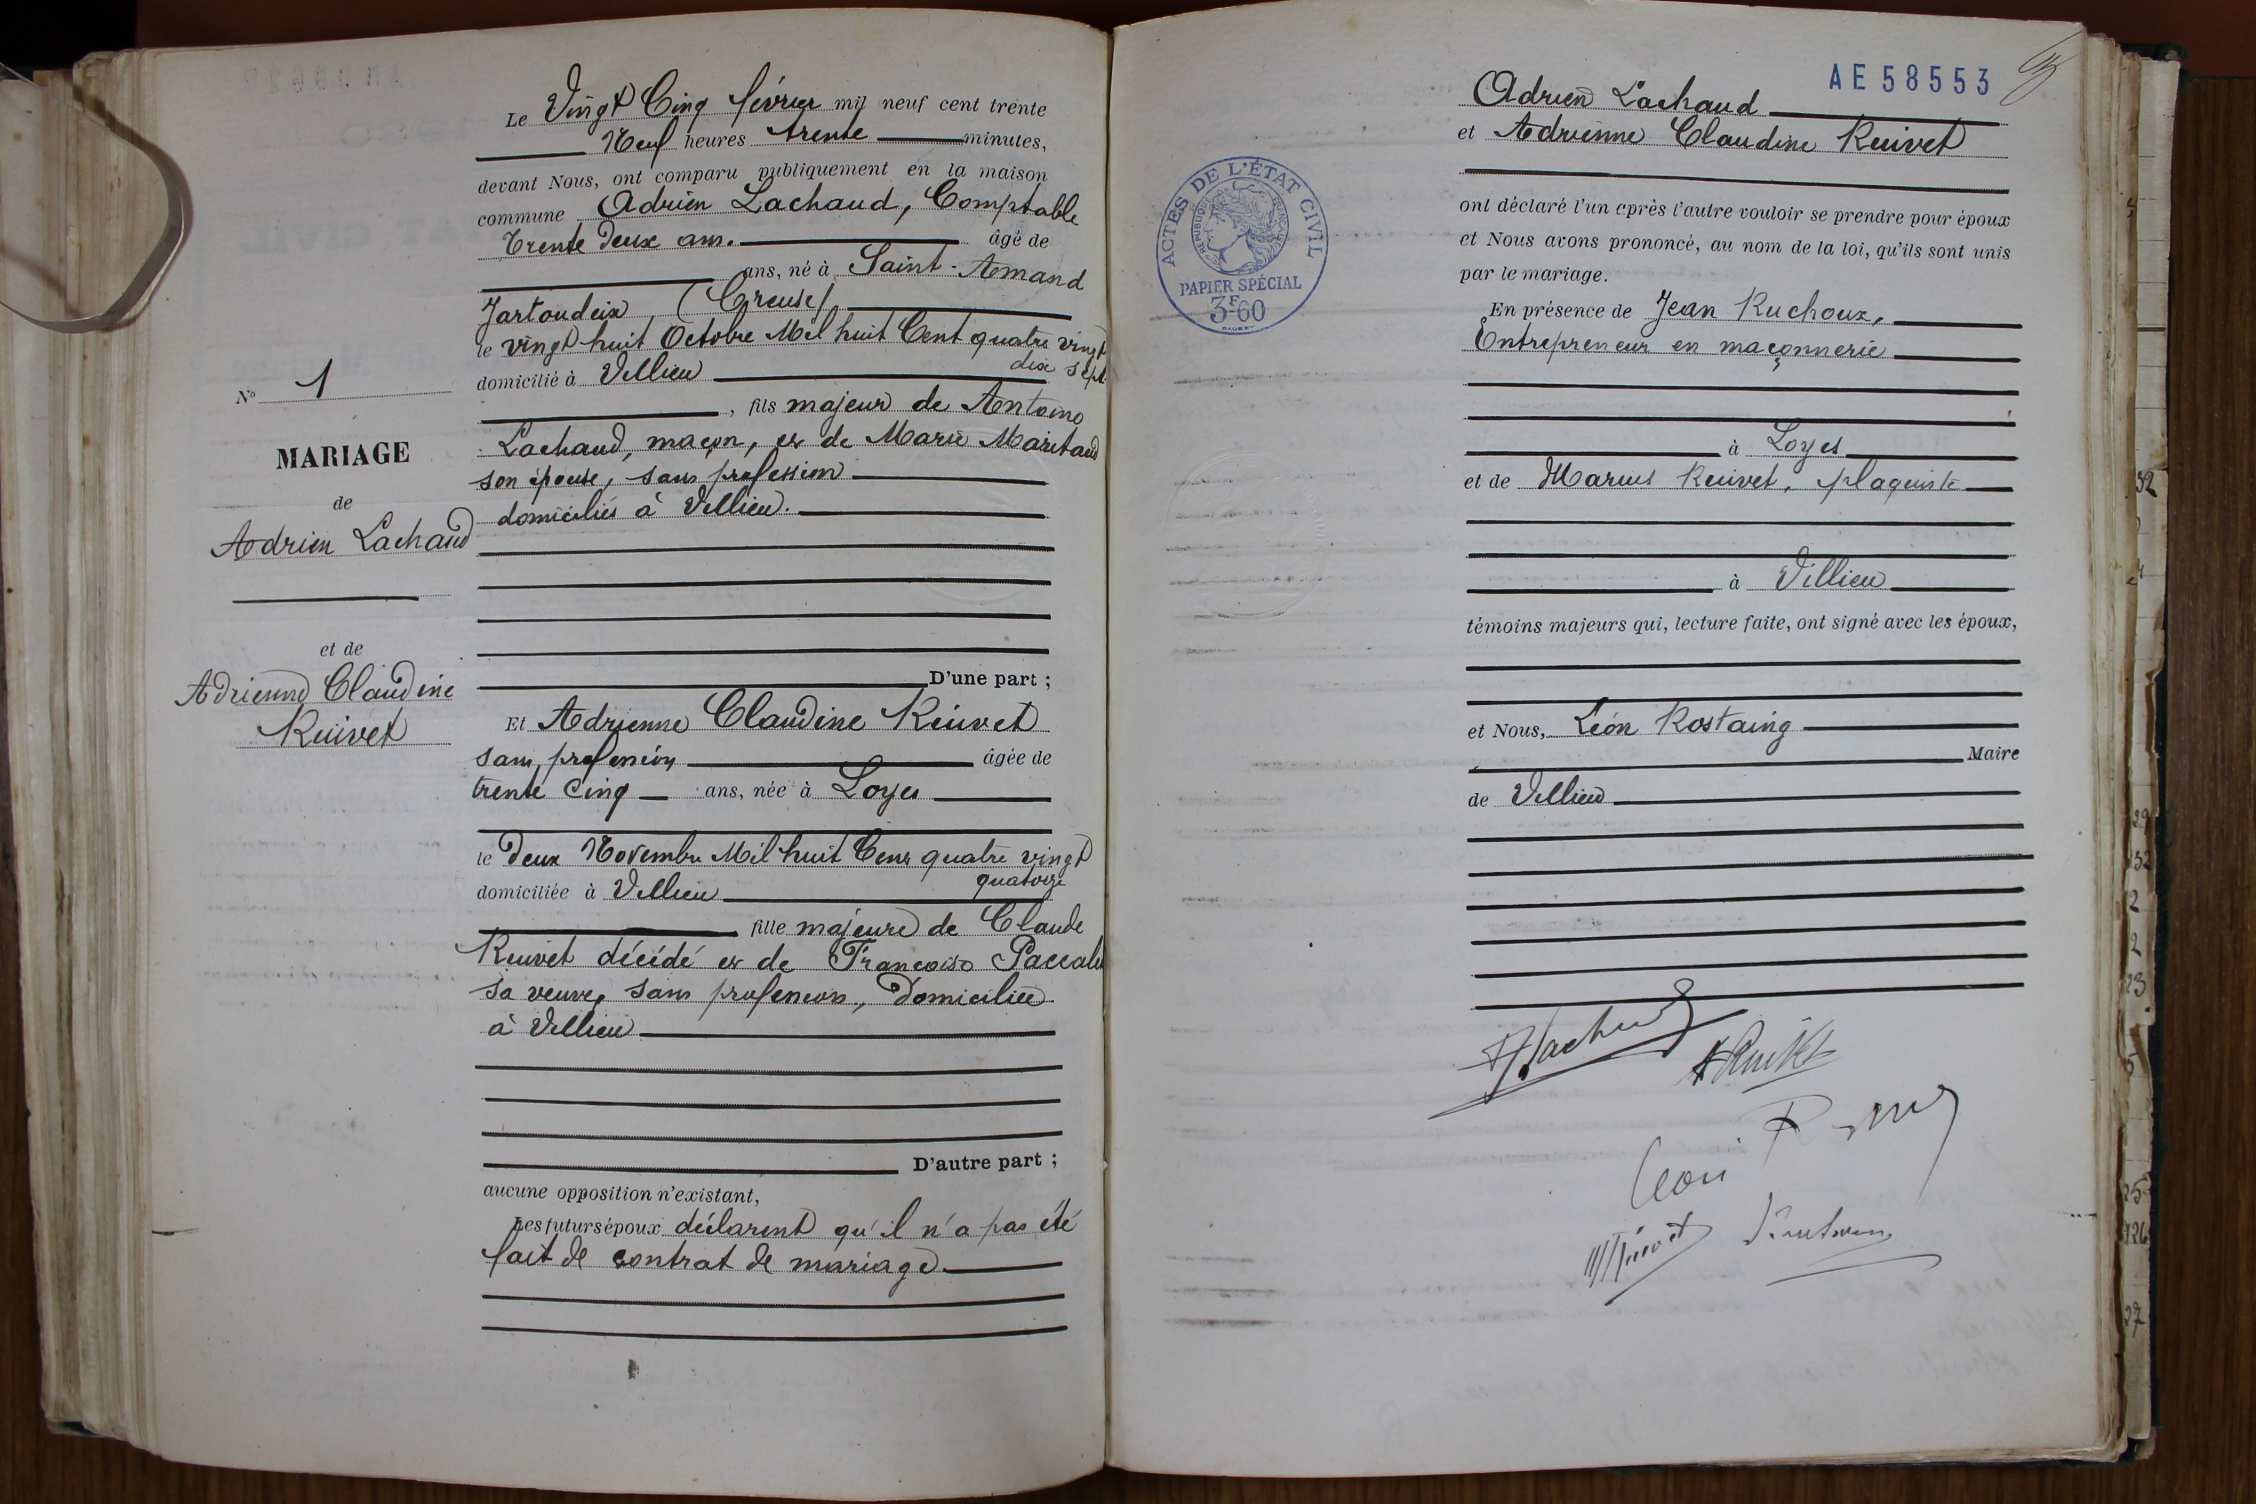 Le Vingt Cinq février mil neuf cent trente
Neuf heures trente minutes,
devant Nous, ont comparu publiquement en la maison
commune Adrien Lachaud, Comptable
Trente deux ans. âgé de
ans, né à Saint-Amand
Jartoudeix (Creuse)
le vingt huit Octobre Mil huit Cent quatre vingt
dix sept
domicilié à Villieu
, fils majeur de Antoine
Lachaud, maçon, et de Marie Maritaud
son épouse, sans profession
domiciliés à Villieu.
N° 1
MARIAGE
de
Adrien Lachaud
et de
Adrienne Claudine
Ruivet
D'une part ;
Et Adrienne Claudine Ruivet
sans profession âgée de
trente cinq ans, née à Loyes
le deux Novembre Mil huit Cent quatre vingt
quatorze
domiciliée à Villieu
fille majeure de Claude
Ruivet décédé et de Françoise
sa veuve, sans profession, domiciliée
à Villieu
D'autre part ;
aucune opposition n'existant,
Les futurs époux déclarent qu'il n'a pas été
fait de contrat de mariage.
AE 58553
Adrien Lachaud
et Adrienne Claudine Ruivet
ACTES DE L'ÉTAT CIVIL
RÉPUBLIQUE FRANÇAISE
PAPIER SPÉCIAL
3F60
ont déclaré l'un après l'autre vouloir se prendre pour époux
et Nous avons prononcé, au nom de la loi, qu'ils sont unis
par le mariage.
En présence de Jean Ruchoux,
Entrepreneur en maçonnerie
à Loyes
et de Marius Ruivet, plaquiste
à Villieu
témoins majeurs qui, lecture faite, ont signé avec les époux,
et Nous, Léon Rostaing
Maire
de Villieu
A Lachaud
A Ruivet
Léon
M Ruivet